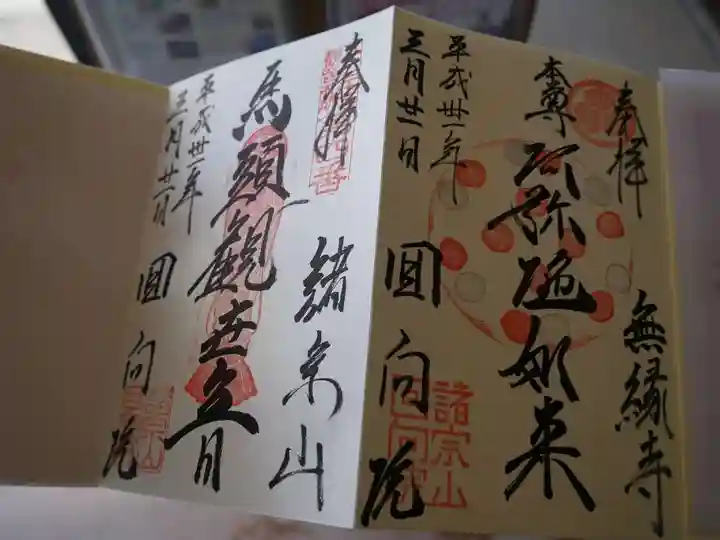 奉拝　無縁寺
本尊 阿弥陀如来
平成卅一年
三月廿一日　回向院
諸宗山
奉拝　諸宗山
馬頭観世音
平成卅一年
三月廿一日　回向院